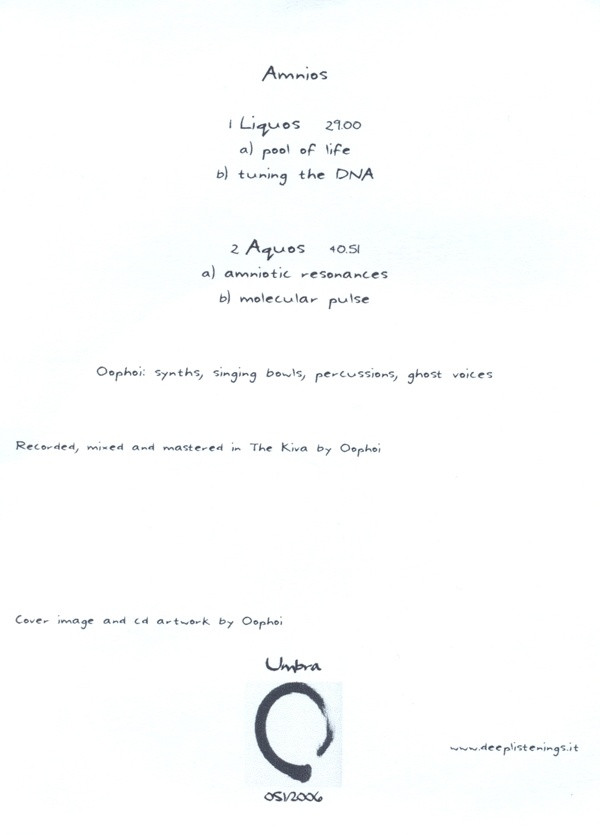 Amnios
1 Liquos 29.00
a) pool of life
b) tuning the DNA
2 Aquos 40.51
a) amniotic resonances
b) molecular pulse
Oophoi: synths, singing bowls, percussions, ghost voices
Recorded, mixed and mastered in The Kiva by Oophoi
Cover image and cd artwork by Oophoi
Umbra
www.deeplistenings.it
051/2006